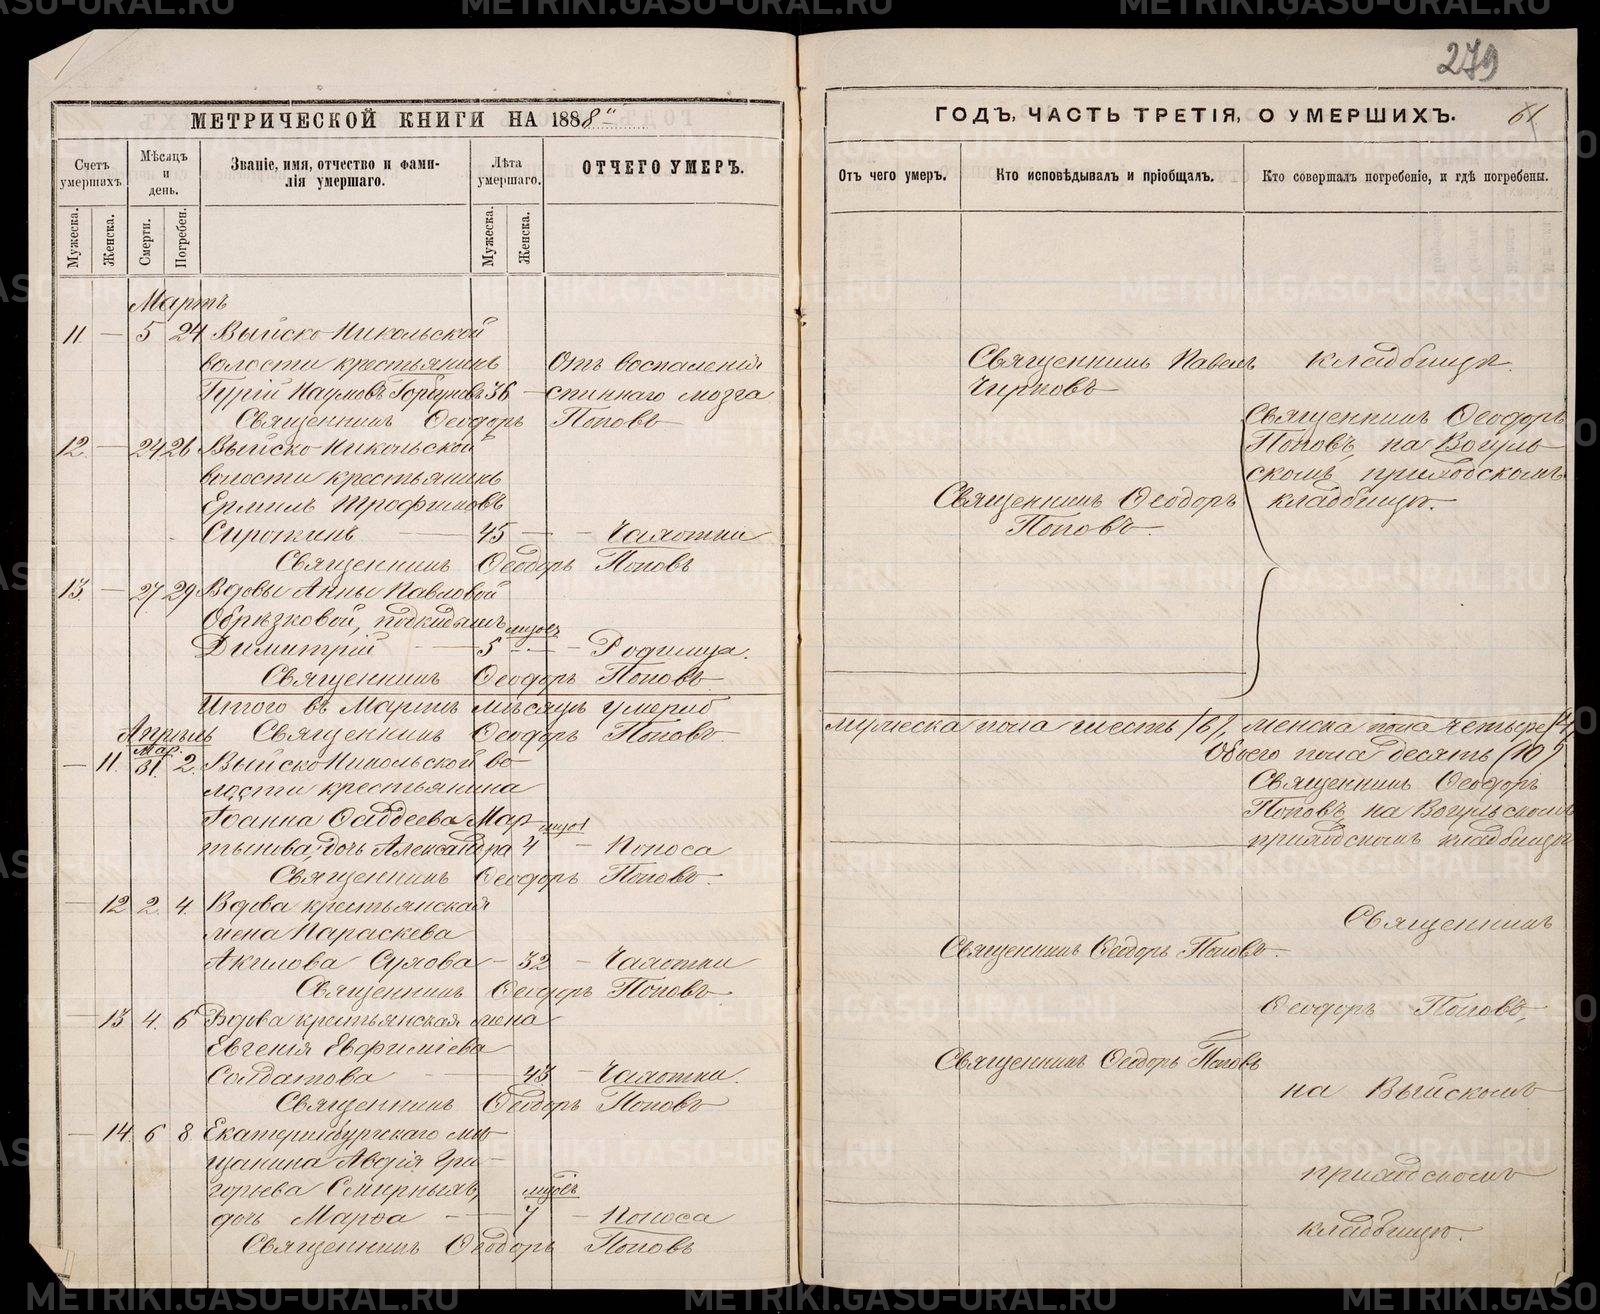 279
61
МЕТРИЧЕСКОЙ КНИГИ НА 1888
ГОДЪ, ЧАСТЬ ТРЕТІЯ, О УМЕРШИХЪ.
Счетъ умершихъ.
Мужеска.
Женска.
Мѣсяцъ и день.
Смерти.
Погребен.
Званіе, имя, отчество и фами-
лія умершаго.
Лѣта умершаго.
Мужеска.
Женска.
ОТЧЕГО УМЕРЪ.
Отъ чего умеръ.
Кто исповѣдывалъ и пріобщалъ.
Кто совершалъ погребеніе, и гдѣ погребены.
Мартъ
11 — 5 24 Выйско-Никольской
волости крестьянинъ Отъ воспаленія
Гурій Наумовъ Горбуновъ 36 — спиннаго мозга
Священникъ Ѳеодоръ Поповъ
12. — 24 26 Выйско-Никольской
волости крестьянинъ
Ермилъ Трофимовъ
Сироткинъ — 45 — — Чахотки
Священникъ Ѳеодоръ Поповъ
13. — 27 29 Вдовы Анны Павловой
Обрѣзковой, подкидышъ
мѣсяц
Димитрій — 5 — — Родимца.
Священникъ Ѳеодоръ Поповъ
Итого въ Мартѣ мѣсяцѣ умерло
Апрѣль Священникъ Ѳеодоръ Поповъ
— 11. Мар. 31. 2. Выйско-Никольской во-
лости крестьянина
Іоанна Ѳаддеева Мар-
тынова, дочь Александра 4 — Поноса
Священникъ Ѳеодоръ Поповъ.
— 12 2. 4. Вдова крестьянская
жена Параскева
Акилова Сухова — 32 — Чахотки
Священникъ Ѳеодоръ Поповъ
— 13 4. 6 Вдова крестьянская жена
Евгенія Евфиміева
Солдатова — 43 — Чахотки.
Священникъ Ѳеодоръ Поповъ
— 14. 6 8 Екатеринбургскаго мѣ-
щанина Авдія Гри-
горьева Смирныхъ,
дочь Марѳа — 7 — Поноса
Священникъ Ѳеодоръ Поповъ
Священникъ Павелъ кладбищѣ.
Чирковъ
Священникъ Ѳеодоръ
Поповъ, на Вогуль-
скомъ приходскомъ
Священникъ Ѳеодоръ кладбищѣ.
Поповъ.
мужеска пола шесть /6/, женска пола четыре /4/,
Обоего пола десять (10)
Священникъ Ѳеодоръ
Поповъ, на Вогульскомъ
приходскомъ кладбищѣ
Священникъ
Священникъ Ѳеодоръ Поповъ.
Ѳеодоръ Поповъ,
Священникъ Ѳеодоръ Поповъ
на Выйскомъ
приходскомъ
кладбищѣ.
METRIKI.GASO-URAL.RU